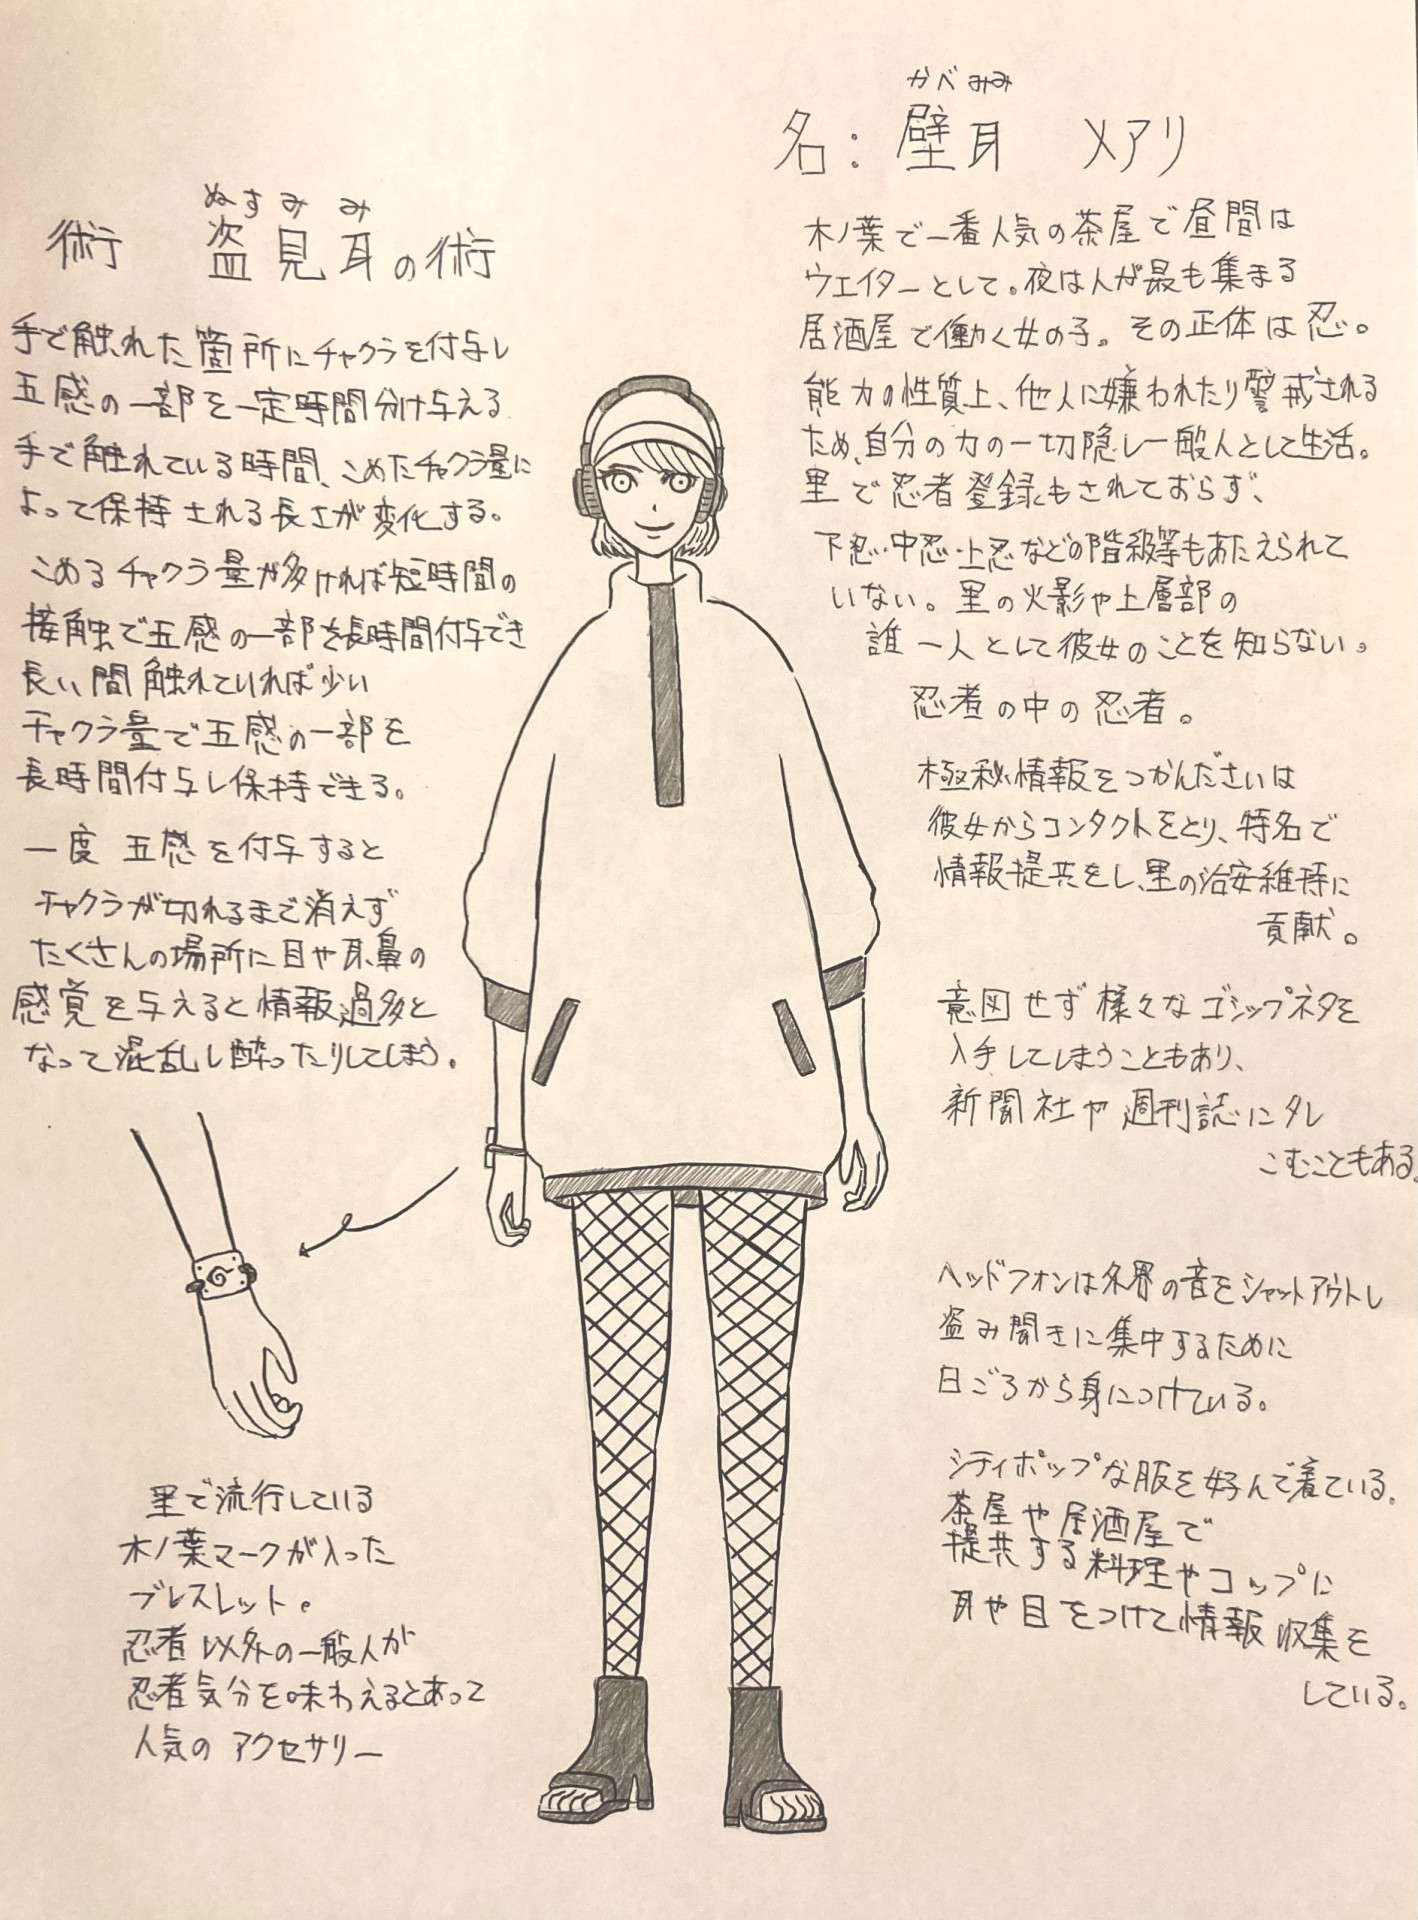 かべみみ
名：壁耳 メアリ
木ノ葉で一番人気の茶屋で昼間は
ウエイターとして。夜は人が最も集まる
居酒屋で働く女の子。その正体は忍。
能力の性質上、他人に嫌われたり警戒される
ため、自分の力の一切隠し一般人として生活。
里で忍者登録もされておらず、
下忍・中忍・上忍などの階級等もあたえられて
いない。里の火影や上層部の
誰一人として彼女のことを知らない。
忍者の中の忍者。
極秘情報をつかんださいは
彼女からコンタクトをとり、特名で
情報提共をし、里の治安維持に
貢献。
意図せず様々なゴシップネタを
入手してしまうこともあり、
新聞社や週刊誌にタレ
こむこともある。
ヘッドフォンは外界の音をシャットアウトし
盗み聞きに集中するために
日ごろから身につけている。
シティポップな服を好んで着ている。
茶屋や居酒屋で
提共する料理やコップに
耳や目をつけて情報収集を
している。
ぬすみみ
術 盗見耳の術
手で触れた箇所にチャクラを付与し
五感の一部を一定時間分け与える
手で触れている時間、こめたチャクラ量に
よって保持される長さが変化する。
こめるチャクラ量が多ければ短時間の
接触で五感の一部を長時間付与でき
長い間触れていれば少い
チャクラ量で五感の一部を
長時間付与し保持できる。
一度 五感を付与すると
チャクラが切れるまで消えず
たくさんの場所に目や耳、鼻の
感覚を与えると情報過多と
なって混乱し酔ったりしてしまう。
里で流行している
木ノ葉マークが入った
ブレスレット。
忍者以外の一般人が
忍者気分を味わえるとあって
人気のアクセサリー